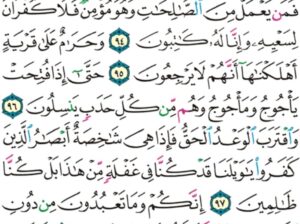 فَمَن يَعْمَلْ مِنَ ٱلصَّـٰلِحَـٰتِ وَهُوَ مُؤْمِنٌ فَلَا كُفْرَانَ
لِسَعْيِهِۦ وَإِنَّا لَهُۥ كَـٰتِبُونَ ٩٤ وَحَرَٰمٌ عَلَىٰ قَرْيَةٍ
أَهْلَكْنَـٰهَآ أَنَّهُمْ لَا يَرْجِعُونَ ٩٥ حَتَّىٰٓ إِذَا فُتِحَتْ
يَأْجُوجُ وَمَأْجُوجُ وَهُم مِّن كُلِّ حَدَبٍ يَنسِلُونَ ٩٦
وَٱقْتَرَبَ ٱلْوَعْدُ ٱلْحَقُّ فَإِذَا هِىَ شَـٰخِصَةٌ أَبْصَـٰرُ ٱلَّذِينَ
كَفَرُوا۟ يَـٰوَيْلَنَا قَدْ كُنَّا فِى غَفْلَةٍ مِّنْ هَـٰذَا بَلْ كُنَّا
ظَـٰلِمِينَ ٩٧ إِنَّكُمْ وَمَا تَعْبُدُونَ مِن دُونِ